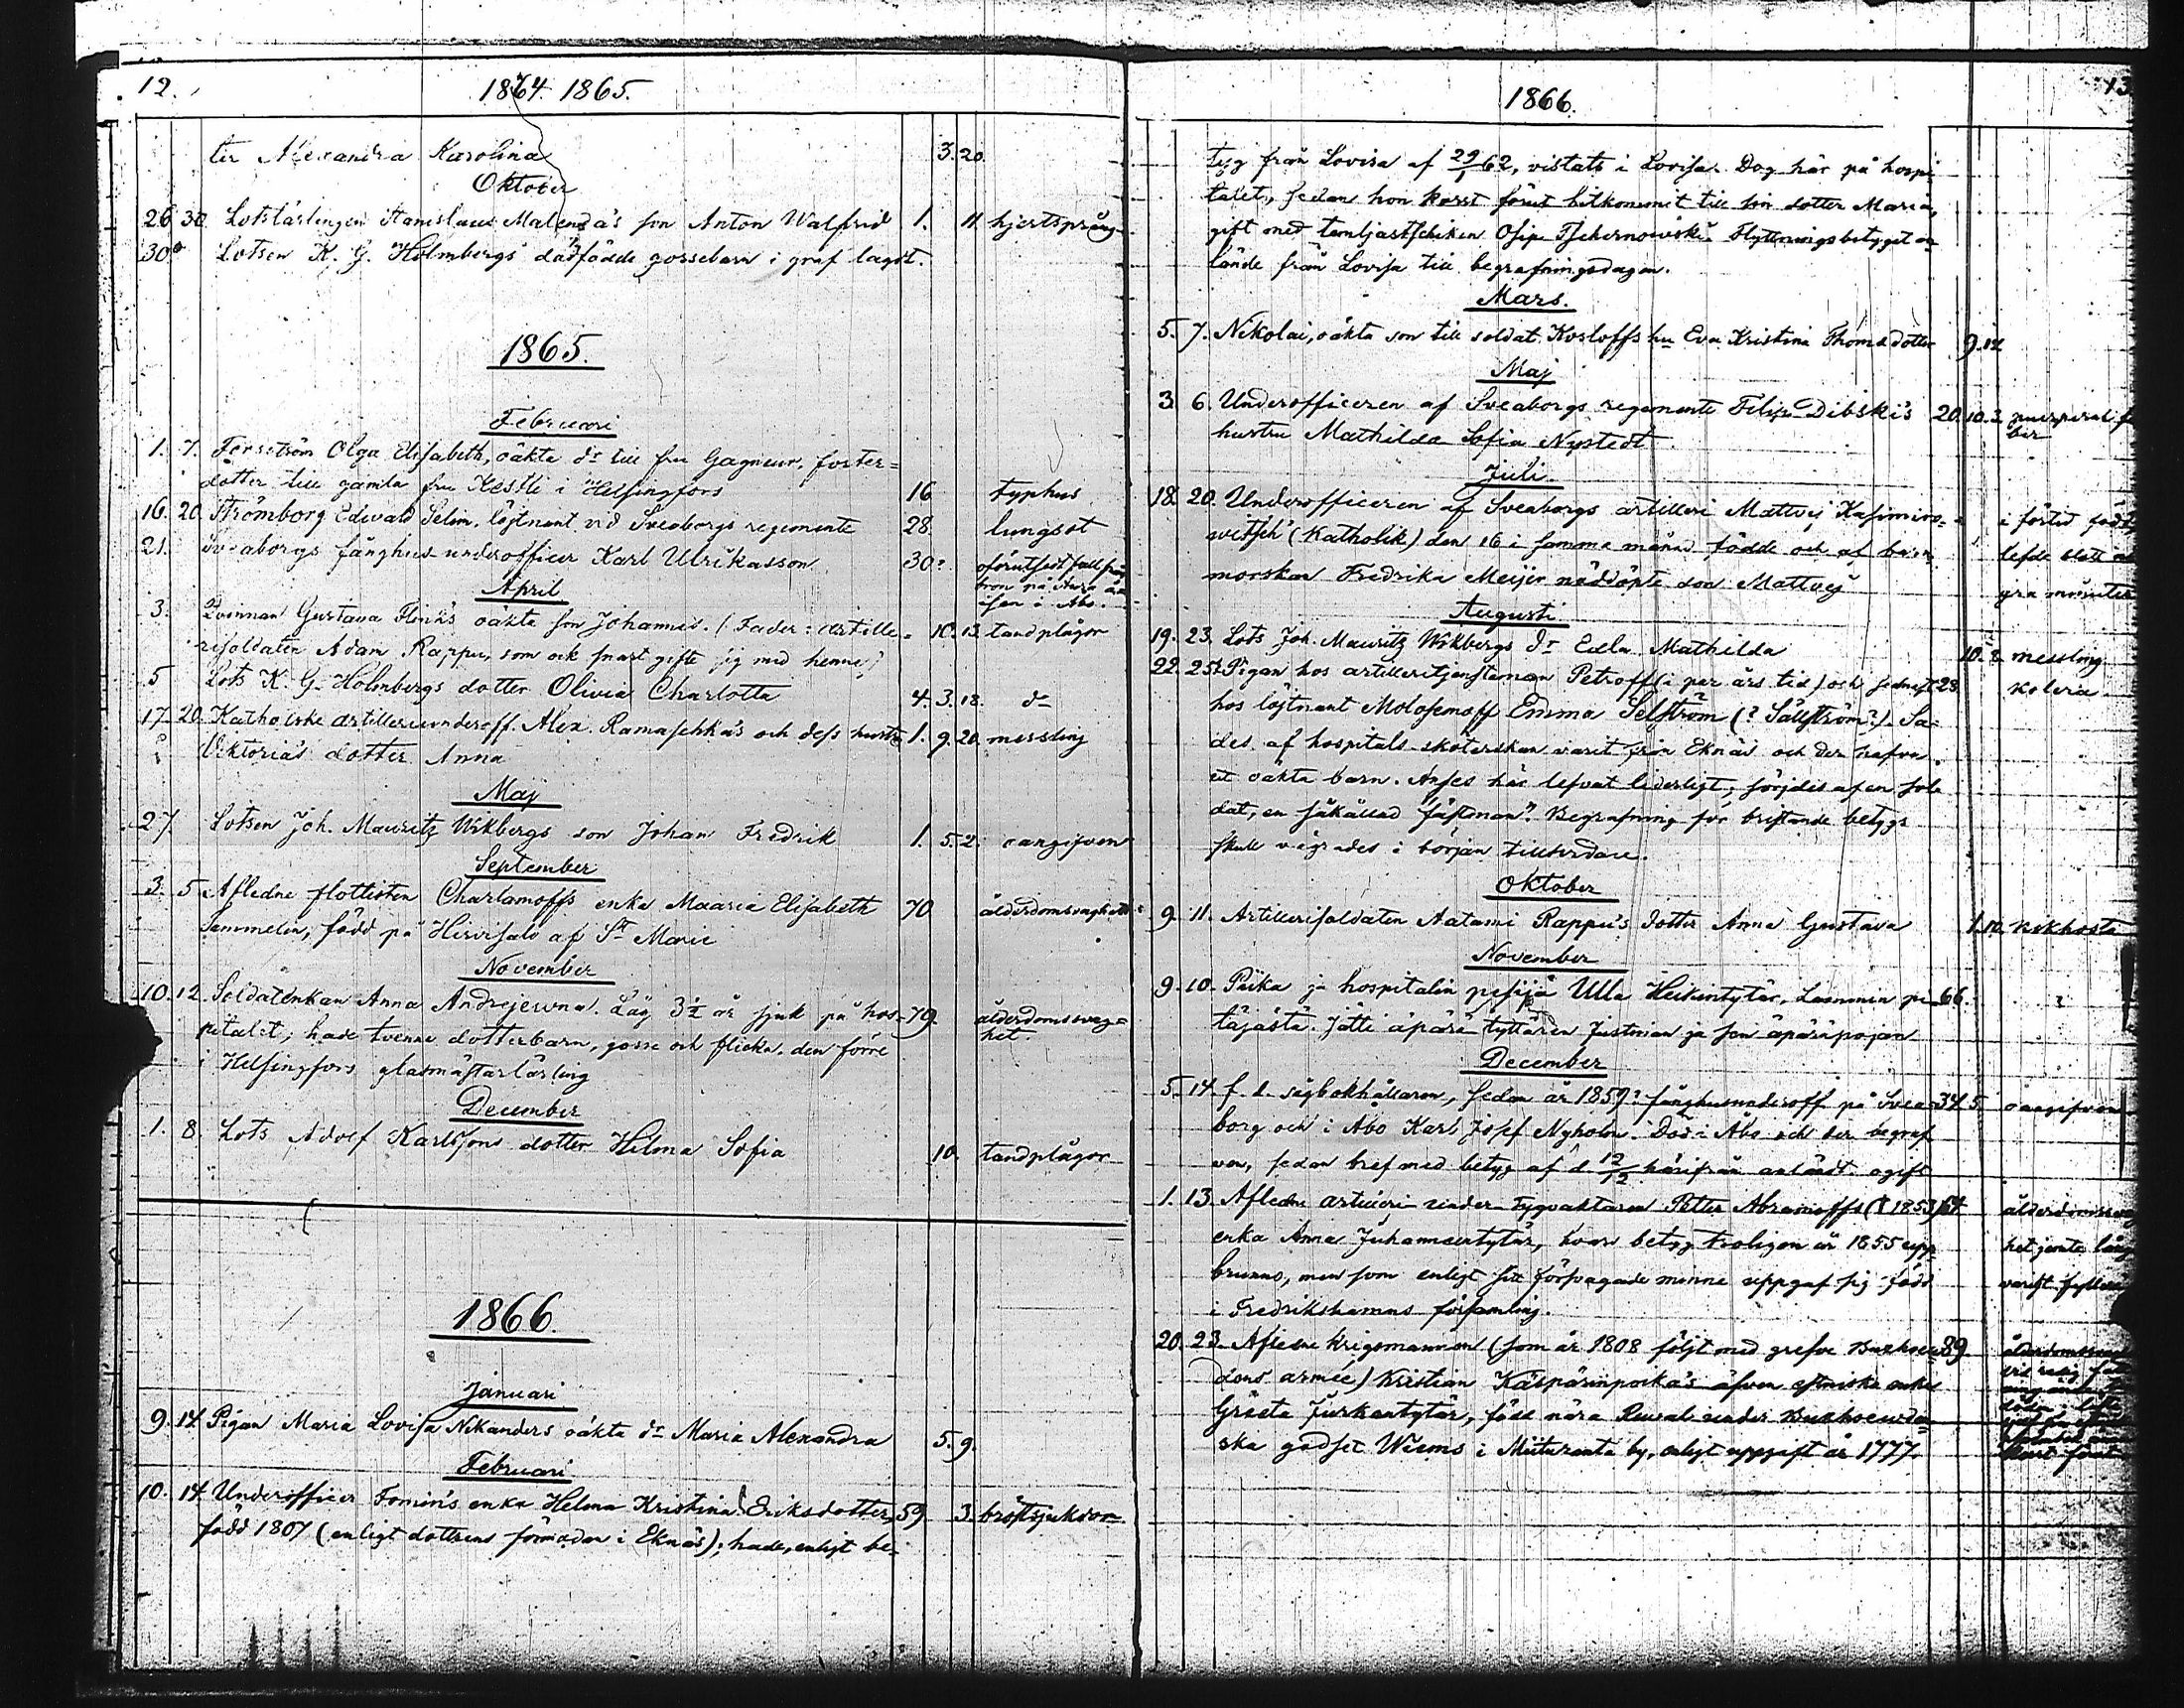 12.
1864. 1865.
ter Alexandra Karolina 3. 20.
Oktober
26 30 Lotslärlingen Stanislaus son Anton Walfrid 1. 11 hjertsprång
30 Lotsen K. G. Holmbergs dödfödde gossebarn i graf lagdt.
1865.
Februari
1. 7. Forsström Olga Elisabeth, oäkta dr till fru Gagneur, foster=
dotter till gamla fru Kestli i Helsingfors 16 typhus
16. 20. Strömborg Edvald Selim, löjtnant vid Sveaborgs regemente 28. lungsot
21. Sveaborgs fånghus underofficer Karl Ulrikasson 30? oförutsedt fall från
bron på Aura å
isen i Åbo.
April
3. Qvinnan Gustava Flinks oäkta son Johannes. (Fader: artille= 10. 13. tandplågor
risoldaten Adam Rappu, som ock snart gifte sig med henne)
5 Lots K. G. Holmbergs dotter Olivia Charlotta 4. 3. 18. do
17. 20. Katholske artilleriunderoff. Alex. Ramaschka's och dess hustru 1. 9. 20. messling
Viktoria's dotter Anna
Maj
27. Lotsen Joh. Mauritz Wikbergs son Johan Fredrik 1. 5. 2. oangifven
September
3. 5 Aflidne flottisten Charlamoffs enka Maaria Elisabeth 70 ålderdomsvaghet
Sammelin, född på Hirvisalo af St Marie
November
10. 12. Soldatenkan Anna Andrejewna. Låg 3½ år sjuk på hos= 79. ålderdomsvag=
pitalet; hade tvenne dotterbarn, gosse och flicka, den förre het.
i Helsingfors glasmästarlärling
December
1. 8. Lots Adolf Karlssons dotter Hilma Sofia 10. tandplågor
1866.
Januari
9. 14. Pigan Maria Lovisa Nikanders oäkta dr Maria Alexandra 5. 9.
Februari
10. 14. Underofficer Fomin's enka Helena Kristina Eriksdotter, 59. 3. bröstsjukdom
född 1807 (enligt dottrens förmodan i Eknäs); hade, enligt be=
13
1866.
tyg från Lovisa af 29/1 62, vistats i Lovisa. Dog här på hospi
talet, sedan hon kort förut hitkommit till sin dotter Maria,
gift med Osip Tschernowski. Flyttningsbetyget an
lände från Lovisa till begrafningsdagen.
Mars.
5. 7. Nikolai, oäkta son till soldat Kosloffs hu Eva Kristina Thomasdotter 9. 12
Maj
3. 6. Underofficeren af Sveaborgs regemente Filip Dibski's 20. 10. 2. puerperal fe
hustru Mathilda Sofia Nystedt ber
Juli
18. 20. Underofficeren af Sveaborgs artilleri Mattvej Kasimiro= i förtid född
witsch (Katholik) den 16 i samma månad födde och af barn lefde blott
morskan Fredrika Meijer nöddöpte son Mattvej gra minuter
Augusti
19. 23. Lots Joh. Mauritz Wikbergs dr Edla Mathilda 10. 2 messling
22. 25. Pigan hos artilleritjensteman Petroff (i par års tid) och sednast 28. kolera
hos löjtnant Molosemoff Emma Selström (? Sällström?). Sa=
des af hospitals sköterskan varit från Eknäs och der hafva
ett oäkta barn. Anses här lefvat liderligt; sörjdes af en sol
dat, en såkallad "fästman". Begrafning för bristande betygs
skull vägrades i början
Oktober
9. 11. Artillerisoldaten Aatami Rappu's dotter Anna Gustava 1. 10. kikhosta
November
9. 10. Piika ja hospitalin pesijä Ulla Heikintytär, Lammin pi 66. ?
täjästä. Jätti äpärä tyttären Justinan ja sen äpäräpojan
December
5. 14. f. d. sågbokhållaren, sedan år 1859? fånghusunderoff på Svea 34. 5. oangifven
borg och i Åbo Karl Josef Nyholm. Död i Åbo och der begraf
ven, sedan bref med betyg af d 12/12 härifrån anländt. ogift
1. 13. Aflidne artilleri under-tygvaktaren Petter Abramoffs († 1853) 64 ålderdomssvag
enka Anna Juhanaantytär, hvars betyg troligen år 1855 upp het jemte lång
brunno, men som enligt sitt försvagade minne uppgaf sig född varigt
i Fredrikshamns församling.
20. 23. Aflidne krigsmannen (som år 1808 följt med grefve Buxhoew 89. ålderdomssvag
dens armée) Kristian Kasparinpoika's äfven enka
Greeta Jurkantytär, född nära Reval under Buxhoewden
ska godset Wiems i by, enligt uppgift år 1777. kort förut